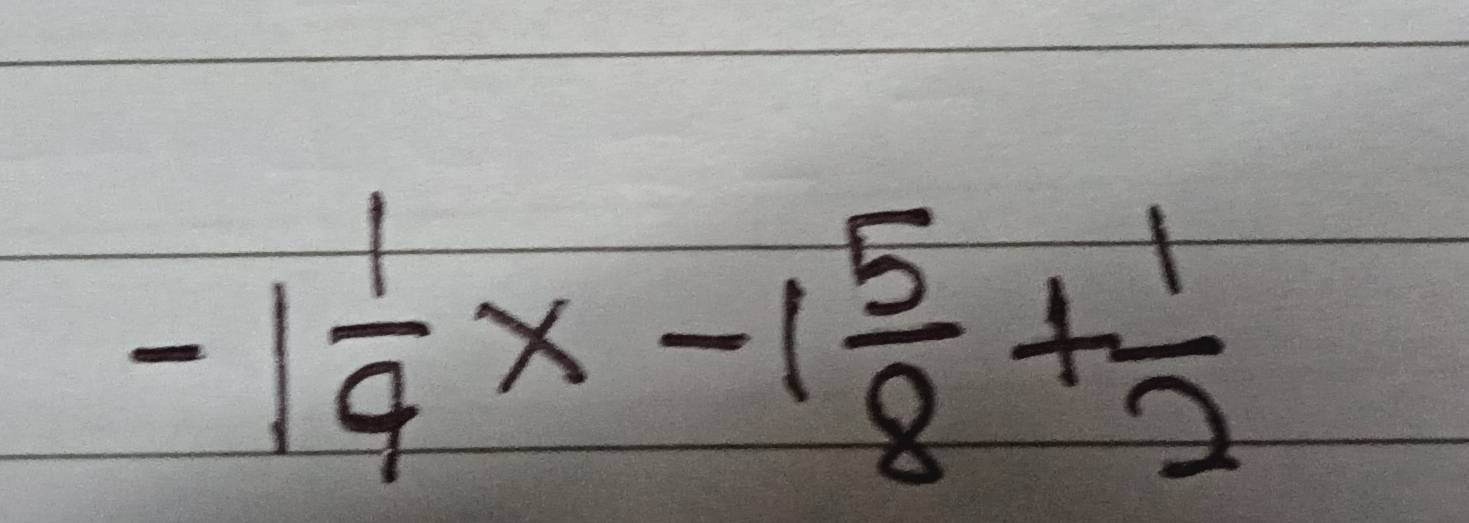 -1 1/9 × -1 5/8 + 1/2